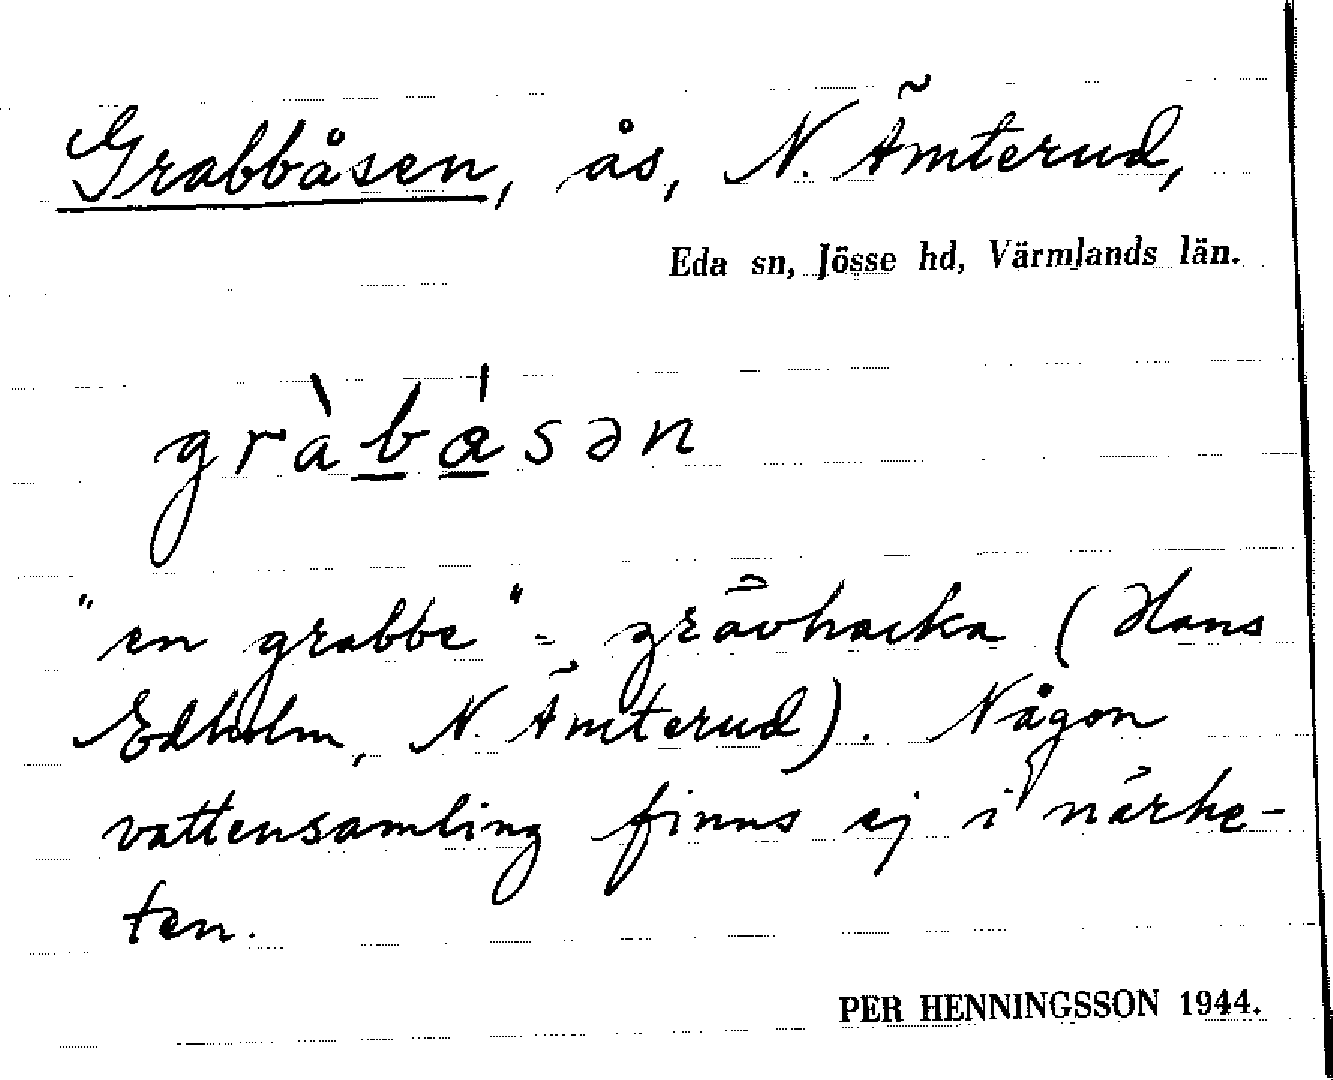 Grabbåsen, ås, N. Ämterud,
Eda sn, Jösse hd, Värmlands län.
gràbåsən
"en grabbe" = grävhacka (Hans
Edholm, N. Ämterud). Någon
vattensamling finns ej i närhe-
ten.
PER HENNINGSSON 1944.